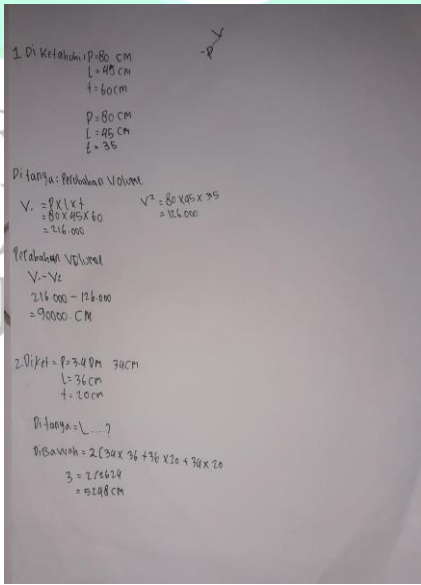 V
-P
1 Di Ketahui : P=80 CM
l=45 CM
t=60cm
P=80 CM
l=45 CM
t=35
Ditanya : Perubahan Volume
V. = P x l x t
= 80 x 45 x 60
= 216.000
V2 = 80 x 45 x 35
= 126.000
Perubahan Volume
V.-V2
216 000 - 126.000
= 90000. CM
2. Diket = P=3.4 Dm 34cm
l=36cm
t=20cm
Ditanya = L ...?
= 2(34 x 36 + 36 x 20 + 34 x 20
= 5248 CM